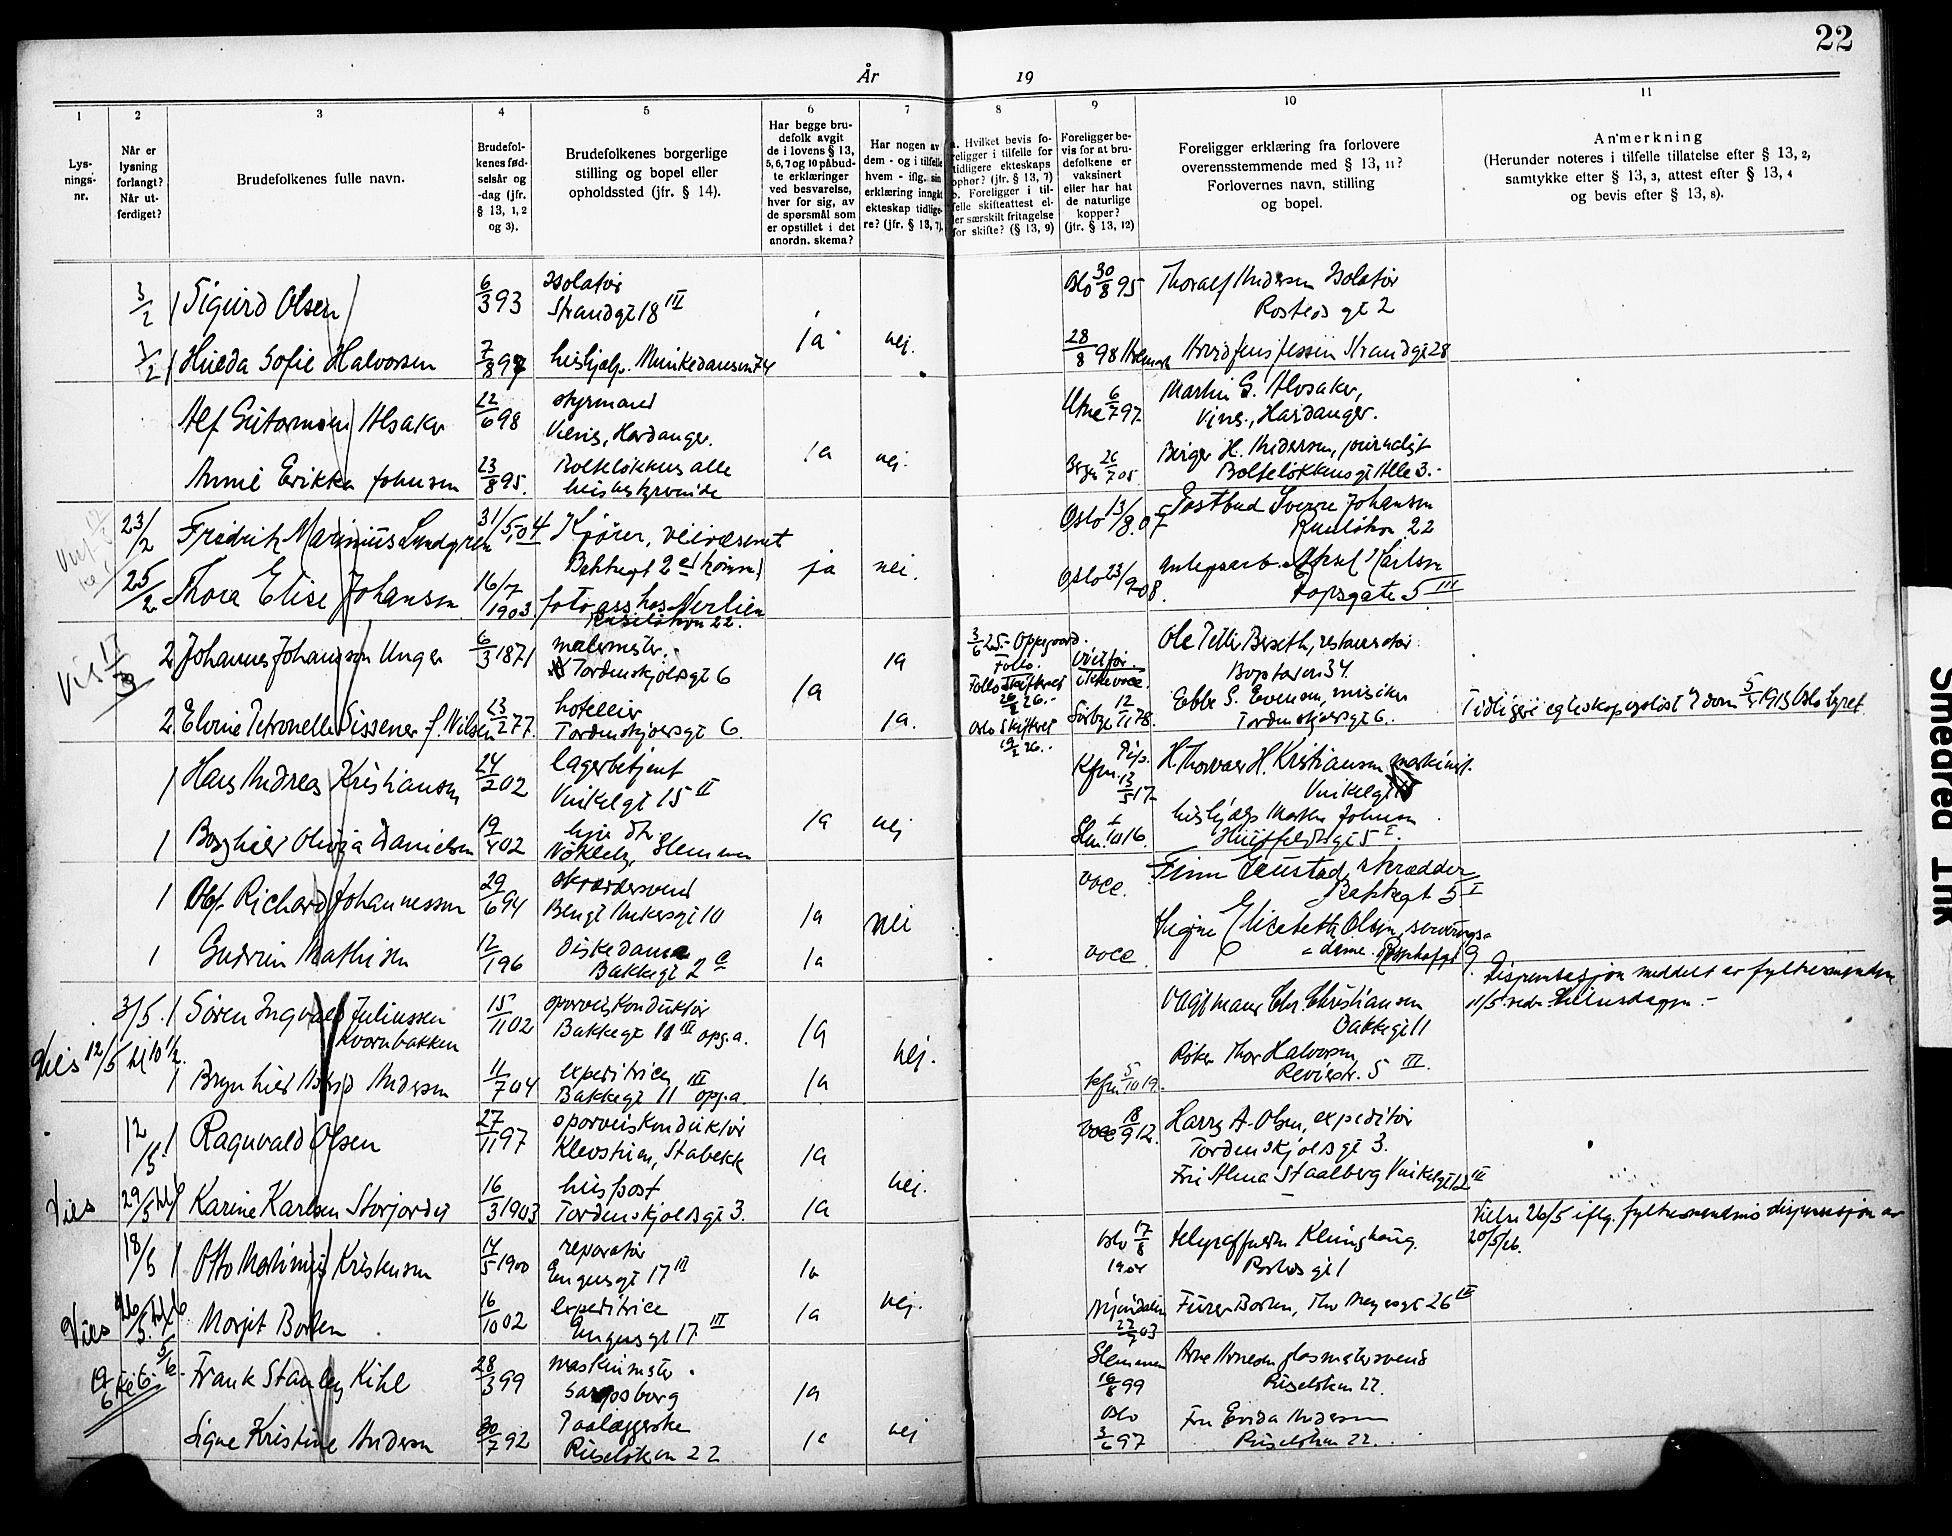 22
År 19
1 2 3 4 5 6 7 8 9 10 11
Lys-
nings-
nr.
Når er
lysning
forlangt?
Når ut-
ferdiget?
Brudefolkenes fulle navn.
Brudefol-
kenes fød-
selsår og
-dag (jfr.
§ 13, 1, 2
og 3).
Brudefolkenes borgerlige
stilling og bopel eller
opholdssted (jfr. § 14).
Har begge bru-
defolk avgit
de i lovens § 13,
5, 6, 7 og 10 påbud-
te erklæringer
ved besvarelse,
hver for sig, av
de spørsmål som
er opstillet i det
anordn. skema?
Har nogen av
dem - og i tilfelle
hvem - iflg. sin
erklæring inngått
ekteskap tidlige-
re? (jfr. § 13, 7).
a. Hvilket bevis fo-
religger i tilfelle for
tidligere ekteskaps
ophør? (jfr. § 13, 7)
b. Foreligger i til-
felle skifteattest el-
ler særskilt fritagelse
for skifte? (§ 13, 9)
Foreligger be-
vis for at bru-
defolkene er
vaksinert
eller har hat
de naturlige
kopper?
(jfr. § 13, 12)
Foreligger erklæring fra forlovere
overensstemmende med § 13, 11?
Forlovernes navn, stilling
og bopel.
Anmerkning
(Herunder noteres i tilfelle tillatelse efter § 13, 2,
samtykke efter § 13, 3, attest efter § 13, 4
og bevis efter § 13, 8).
3/2 1 Sigurd Olsen 6/3 93 Isolatør Oslo 30/8 95 Thoralf Andersen Isolatør
Strandgt 18 III Rosteds gt 2
3/2 1 Hulda Sofie Halvorsen 7/8 97 hushjælp. Munkedamsv 74 ja nej. 28/8 98 Arvid Jens Jessen Strandgt 28
Alf Guttormsen Alsaker 22/6 98 styrmand Utne 6/7 97 Martin G. Alsaker,
Vines, Hardanger. Vines, Hardanger.
ja nej. Birger H. Andersen, journalist
Annie Erikka Johnsen 23/8 95. Bolteløkkens alle Bergen 26/7 05 Bolteløkkensgt Alle 3.-
husbestyrerinde
23/2 Fredrik Marinius Lundgren 31/5 04 Kjører, veivæsenet Oslo 13/8.07 Postbud Sverre Johansen
Bakkegt 2 Ruseløkv. 22
25/2 Thora Elise Johansen 16/7 1903 foto ass hos Nerlien ja nei. Oslo 23/9 08. anlegsarb. Aksel Karlsen
Ruseløkvn 22. Fossgate 5 III
Vies 17/3 2 Johannes Johansson Unger 6/3 1871 malermester. ja 3/6 25.- Oppegaard. Ole Petter Braseth, restauratør
Tordenskjoldsgt 6 Follo. Bogstadvn 34.
ja Follo Skifteret Ebbe S. Evensen, musiker
2 Elvine Petronelle Sissener f. Nilsen 23/2 77. hotelleier ja. Oslo Skifteret 12/11 78. Tordenskjoldsgt 6. Tidligere egteskap opløst v dom 5/5 1915 Oslo byret
Tordenskjoldsgt 6. 19/2 26.-
1 Hans Andreas Kristiansen 24/2 02 lagerbetjent 13/5 17- H. Thorvald H. Kristiansen maskinist.
Vinkelgt 15 II Vinkelgt 15
ja nej hushjælp Marthe Johnsen
1 Borghild Olivia Danielsen 19/4 02 hjv dtr. 10 16. Huitfeldtsgt 5 I.
Nøkleby, Slemmen
1 Olaf Richard Johannessen 29/6 94 skræddersvend ja nei vacc. Finn Jeustad, skrædder
Bengt Ankersgt 10 Bakkegt 5 I
1 Gudrun Mathisen 12/1 96 Diskedame ja vacc. Signe Elisabeth Olsen, serverings-
Bakkegt 2 c - dame.
Dispensasjon meddelt av fylkesmanden
3/5. 1 Søren Ingvald Juliussen 15/11 02 sporveiskonduktør Vaktmand Chr. Christiansen 11/5
Kvornbakken Bakkegt 11 III opg.a. ja Bakkegt 11
Vies 12/5 kl 10 1/2. nej. Røker Thor Halvorsen
1 Brynhild Astrid Andersen 11/7 04 expeditrice ja 5/10 19. Revierstr. 5 III.
Bakkegt 11 III opg.a.
12/5 1 Ragnvald Olsen 27/11 97 sporveiskonduktør vacc 18/9 12. Harry A. Olsen, expeditør
Klevstuen, Stabekk ja Tordenskjoldsgt 3.
nej. Fru Alma Staalberg Vinkelgt 12 III
Vies 29/5 kl 6 Karine Karlsen Storjordet 16/3 1903 huspost ja
Tordenskjoldsgt 3. Vielse 26/5 iflg. fylkesmandens dispensasjon av
18/5 1 Otto Martinius Kristensen 14/5 1900 reparatør Oslo 17/8 20/5/26.
Engensgt 17 III ja 1901 Rostedsgt 1
Vies 26/5 kl 6 Margit Borlen 16/10 02 expeditrice ja nej. Mjøndalen Fürer Borlen, Thv Meyersgt 26 II
Engensgt 17 III 22/7 03
5/6 Frank Stanley Kihl 28/3 99 maskinmester. Slemmen Arne Arnesen glasmestersvend
Sarpsborg ja 16/8 99 Ruseløkvn 22.
Oslo Fru Evida Andersen
Signe Kristine Andersen 30/7 92 Paalæggerske ja nej 3/6 97 Ruseløkvn 22.
Ruseløkvn 22
Smeared Ink